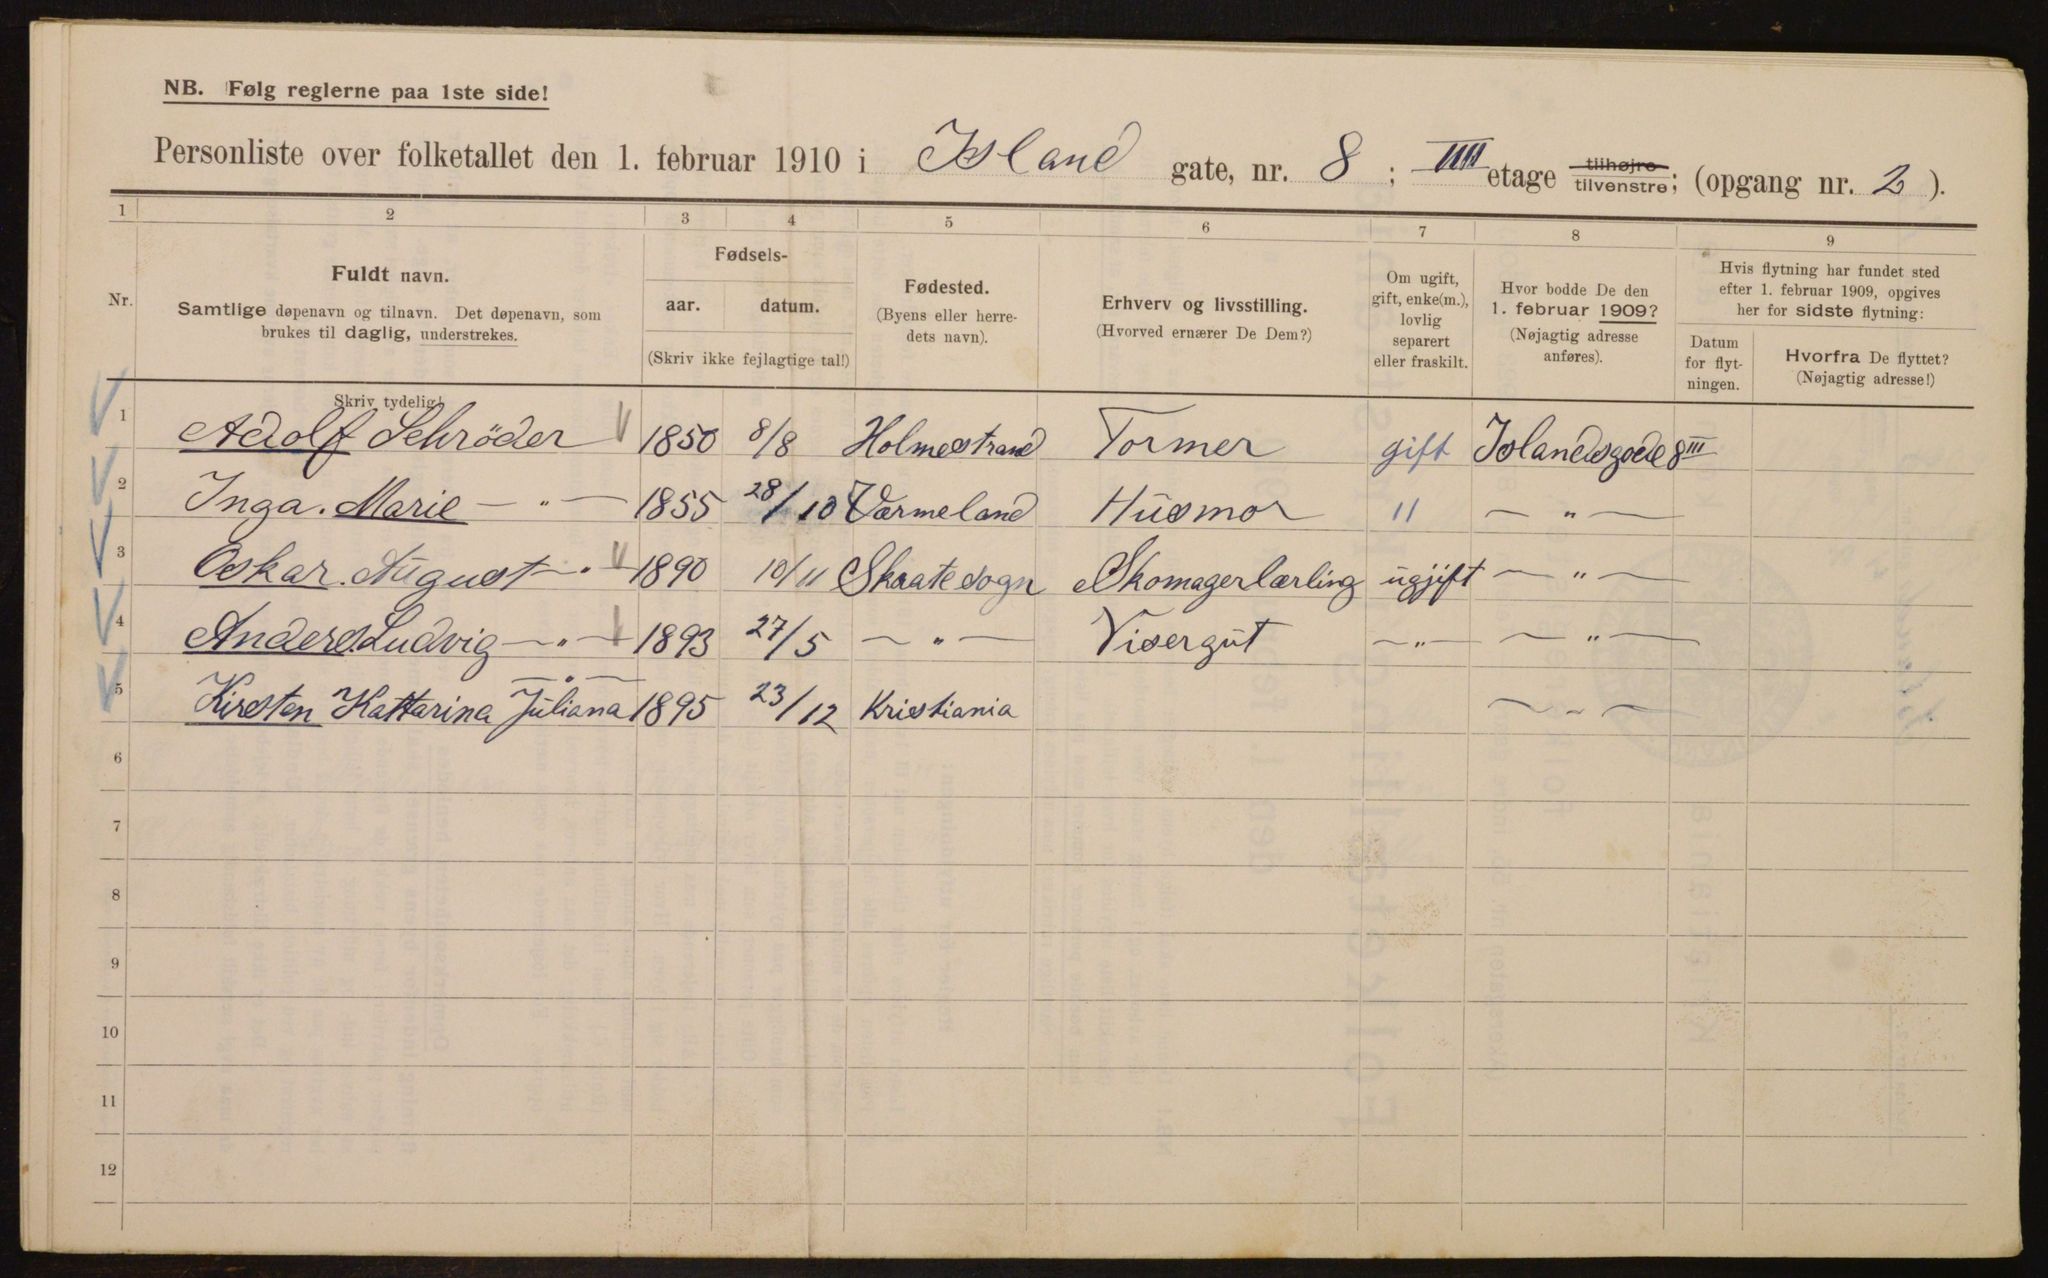 NB. Følg reglerne paa 1ste side!
Personliste over folketallet den 1. februar 1910 i Island gate, nr. 8; IIII etage tilhøjre tilvenstre; (opgang nr. 2).
1 2 3 4 5 6 7 8 9
Nr.
Fuldt navn.
Samtlige døpenavn og tilnavn. Det døpenavn, som
brukes til daglig, understrekes.
Skriv tydelig!
Fødsels-
aar. datum.
(Skriv ikke fejlagtige tal!)
Fødested.
(Byens eller herre-
dets navn).
Erhverv og livsstilling.
(Hvorved ernærer De Dem?)
Om ugift,
gift, enke(m.),
lovlig
separert
eller fraskilt.
Hvor bodde De den
1. februar 1909?
(Nøjagtig adresse
anføres).
Hvis flytning har fundet sted
efter 1. februar 1909, opgives
her for sidste flytning:
Datum
for flyt-
ningen.
Hvorfra De flyttet?
(Nøjagtig adresse!)
1 Adolf Schröder 1850 8/8 Holmestrand Former gift Islandsgade 8 III
2 Inga. Marie — " — 1855 28/10 Værmeland Husmor " — " —
3 Oskar. August — " — 1890 10/11 Skaatesogn Skomagerlærling ugjift — " —
4 Anders. Ludvig — " — 1893 27/5 — " — Visergut — " — — " —
5 Kirsten Kattarina Juliana — " — 1895 23/12 Kristiania — " —
6
7
8
9
10
11
12